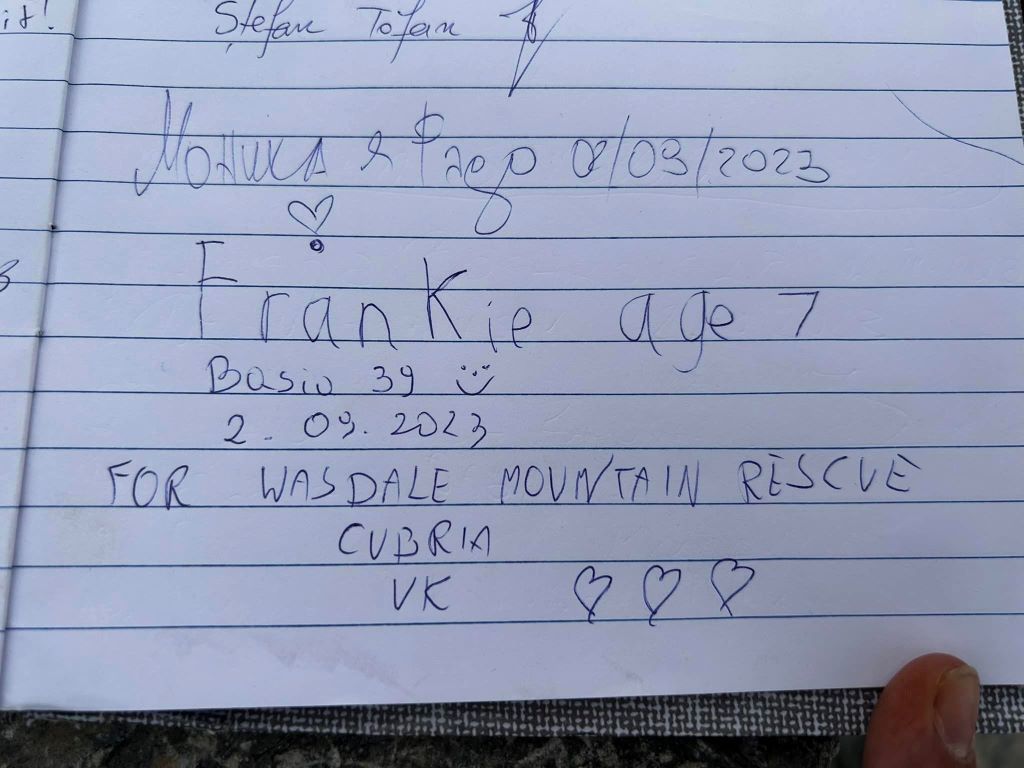 it!
Ștefan Tofan
Моника я 02/09/2023
Frankie age 7
Basiu 39
2. 09. 2023
FOR WASDALE MOUNTAIN RESCUE
CUBRIA
UK